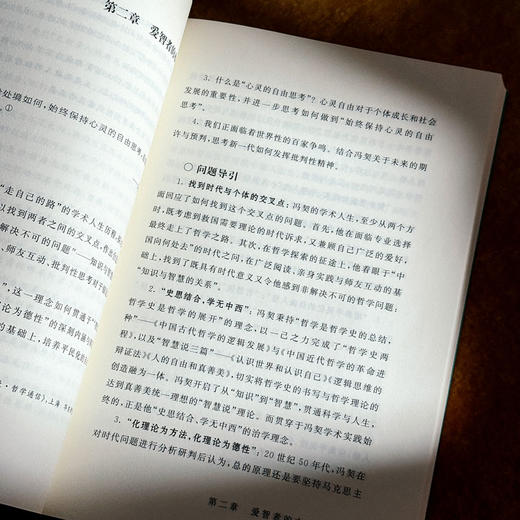 第二章 爱智者的
处境如何,始终保持心灵的自由思考
①
“走自己的路”的学术人生历程
以找到两者之间的交叉点,作出
解决不可的问题”——知识与智
、师友互动、批判性思考对于
”,这一理念如何贯通于“
论为德性”的深刻内涵
的基础上,培养平民化
·哲学通信》,上海
3. 什么是“心灵的自由思考”?心灵自由对于个体成长和社会
发展的重要性,并进一步思考如何做到“始终保持心灵的自由
思考”。
4. 我们正面临着世界性的百家争鸣。结合冯契关于未来的期
许与预判,思考新一代如何发挥批判性精神。
○ 问题导引
1. 找到时代与个体的交叉点:冯契的学术人生,至少从两个方
面回应了如何找到这个交叉点的问题。首先,他在面临专业选择
时,既考虑到救国需要理论的时代诉求,又兼顾自己广泛的爱好,
最终走上了哲学之路。其次,在哲学探索的征途上,他着眼于“中
国向何处去”的时代之问,在广泛阅读、亲身实践与师友互动的基
础上,找到了既具有时代意义又令他感到非解决不可的哲学问题:
“知识与智慧的关系”。
2. “史思结合,学无中西”:冯契秉持“哲学是哲学史的总结,
哲学史是哲学的展开”的理念,以一己之力完成了“哲学史两
种”——《中国古代哲学的逻辑发展》与《中国近代哲学的革命进
程》,以及“智慧说三篇”——《认识世界和认识自己》《逻辑思维的
辩证法》《人的自由和真善美》,切实将哲学史的书写与哲学理论的
创造融为一体。冯契开启了从“知识”到“智慧”,贯通科学与人生,
达到真善美统一理想的“智慧说”理论。而贯穿于冯契学术实践始
终的,正是他“史思结合、学无中西”的治学理念。
3. “化理论为方法,化理论为德性”:20世纪50年代,冯契在
对时代问题进行分析研判后认为,总的原则还是要坚持马克思主
第二章 爱智者的